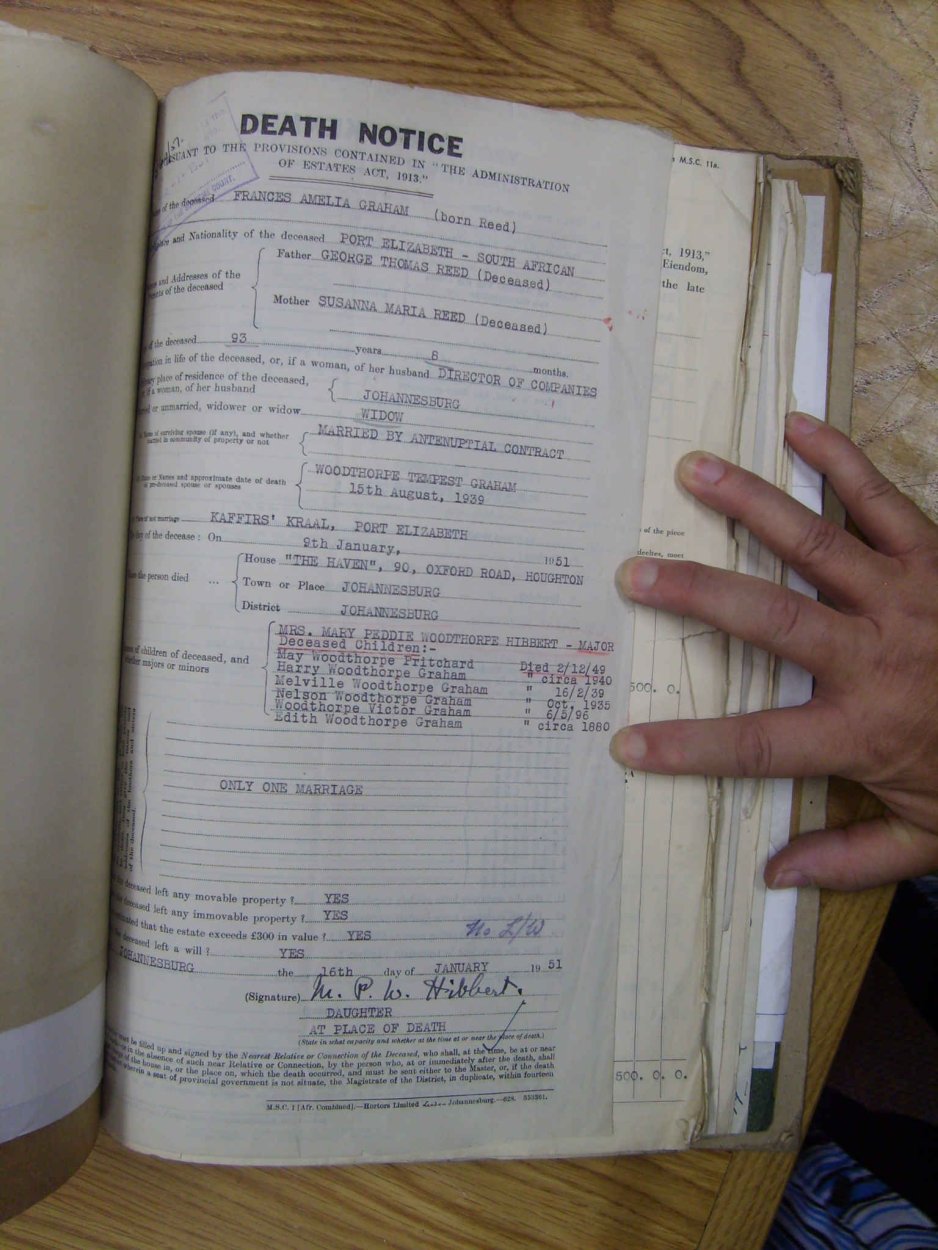 DEATH NOTICE
SUANT TO THE PROVISIONS CONTAINED IN "THE ADMINISTRATION
OF ESTATES ACT, 1913."
of the deceased FRANCES AMELIA GRAHAM (born Reed)
and Nationality of the deceased PORT ELIZABETH - SOUTH AFRICAN
and Addresses of the
of the deceased
Father GEORGE THOMAS REED (Deceased)
Mother SUSANNA MARIA REED (Deceased)
of the deceased 93 years 8 months.
in life of the deceased, or, if a woman, of her husband DIRECTOR OF COMPANIES
place of residence of the deceased,
if a woman, of her husband
JOHANNESBURG
or unmarried, widower or widow WIDOW
of surviving spouse (if any), and whether
married in community of property or not
MARRIED BY ANTENUPTIAL CONTRACT
or Names and approximate date of death
pre-deceased spouse or spouses
WOODTHORPE TEMPEST GRAHAM
15th August, 1939
of marriage KAFFIRS' KRAAL, PORT ELIZABETH
of the decease : On 9th January, 1951
the person died ...
House "THE HAVEN", 90, OXFORD ROAD, HOUGHTON
Town or Place JOHANNESBURG
District JOHANNESBURG
of children of deceased, and
majors or minors
MRS. MARY PEDDIE WOODTHORPE HIBBERT - MAJOR
Deceased Children:-
May Woodthorpe Pritchard Died 2/12/49
Harry Woodthorpe Graham " circa 1940
Melville Woodthorpe Graham " 16/2/39
Nelson Woodthorpe Graham " Oct, 1935
Woodthorpe Victor Graham " 6/5/96
Edith Woodthorpe Graham " circa 1880
ONLY ONE MARRIAGE
deceased left any movable property ? YES
deceased left any immovable property ? YES
that the estate exceeds £300 in value ? YES No L/W
deceased left a will ? YES
JOHANNESBURG the 16th day of JANUARY 1951
(Signature) M. P. W. Hibbert.
DAUGHTER
AT PLACE OF DEATH
(State in what capacity and whether at the time at or near the place of death.)
must be filled up and signed by the Nearest Relative or Connection of the Deceased, who shall, at the time, be at or near
in the absence of such near Relative or Connection, by the person who, at or immediately after the death, shall
of the house in, or the place on, which the death occurred, and must be sent either to the Master, or, if the death
wherein a seat of provincial government is not situate, the Magistrate of the District, in duplicate, within fourteen
M.S.C. 1 [Afr. Combined].—Hortors Limited Johannesburg.—628. 553361.
M.S.C. 11a.
ct, 1913,"
Eiendom,
the late
of the piece
500. 0.
500. 0. 0.